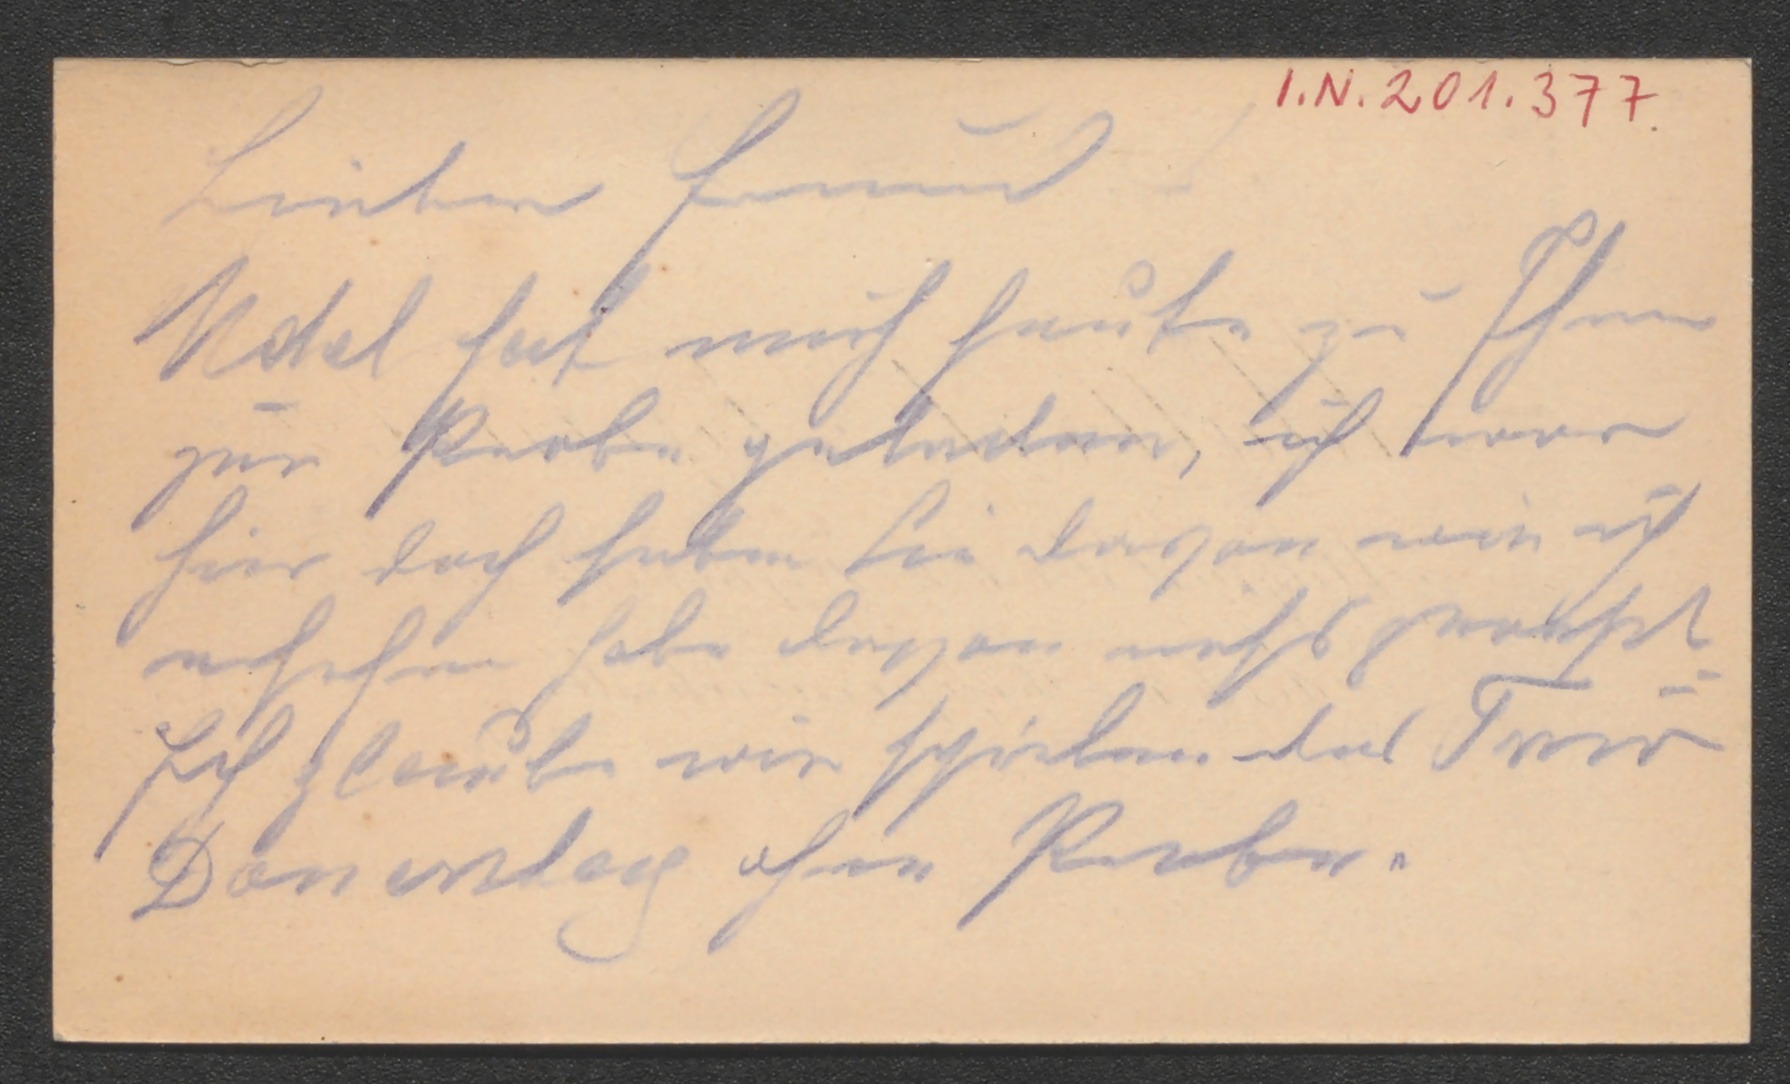 I.N. 201.377.
Lieber Freund!
Udel hat mich heute zu Ihnen
zur Probe geladen, ich war
hier doch haben Sie davon wie ich
habe davon nichts gewußt
Ich glaube wir spielen das Trio
Donnerstag ohne Probe.